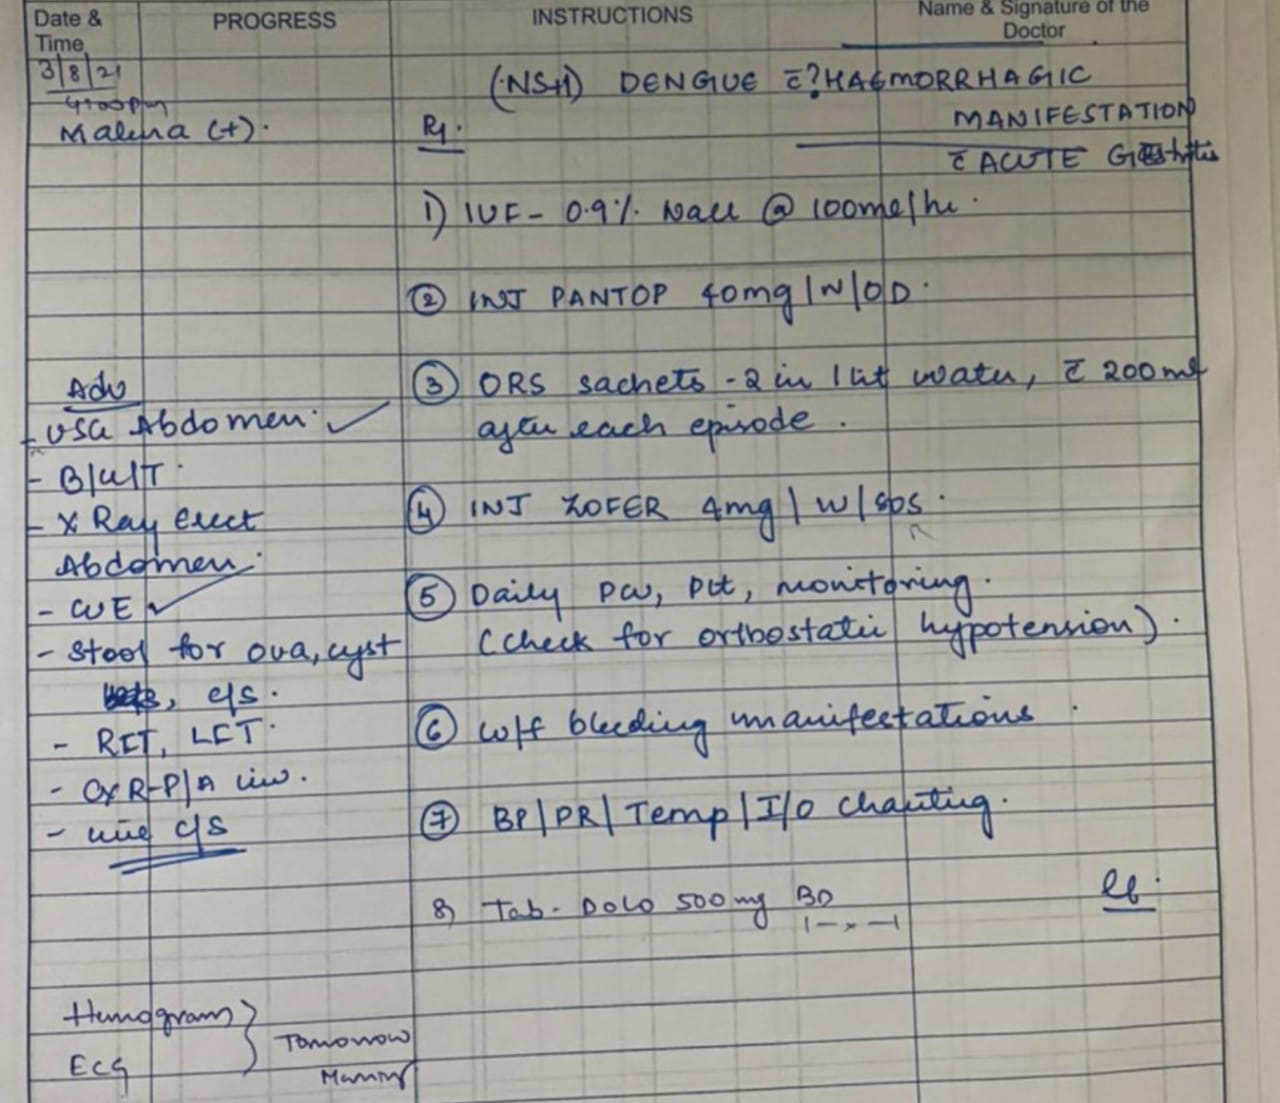 Date &
Time
PROGRESS
INSTRUCTIONS
Name & Signature of the
Doctor
3/8/21
4:00pm
Malena (+).
(NS+1) DENGUE c̄ ? HAEMORRHAGIC
MANIFESTATION
c̄ ACUTE
Rx.
1) IVF - 0.9% NaCl @ 100ml/hr.
② INJ PANTOP 40mg IV/OD.
③ ORS sachets - 2 in 1 lit water, c̄ 200ml
after each episode.
④ INJ ZOFER 4mg IV/SOS.
⑤ Daily PCV, Plt, monitoring.
(check for orthostatic hypotension).
⑥ W/f bleeding manifestations.
⑦ BP/PR/Temp/I/O charting.
8) Tab. DOLO 500mg BD
1-x-1
Adv
- USG Abdomen. ✓
- B/U/T.
- X Ray Erect
Abdomen.
- CUE ✓
- Stool for ova, cyst
, c/s.
- RFT, LFT.
- CXR-P/A view.
- urine c/s
Hemogram }
ECG
Tomorrow
Morning